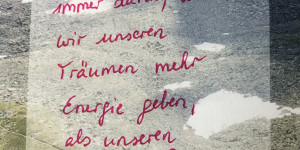 immer
wir unseren
Träumen mehr
Energie geben,
als unseren